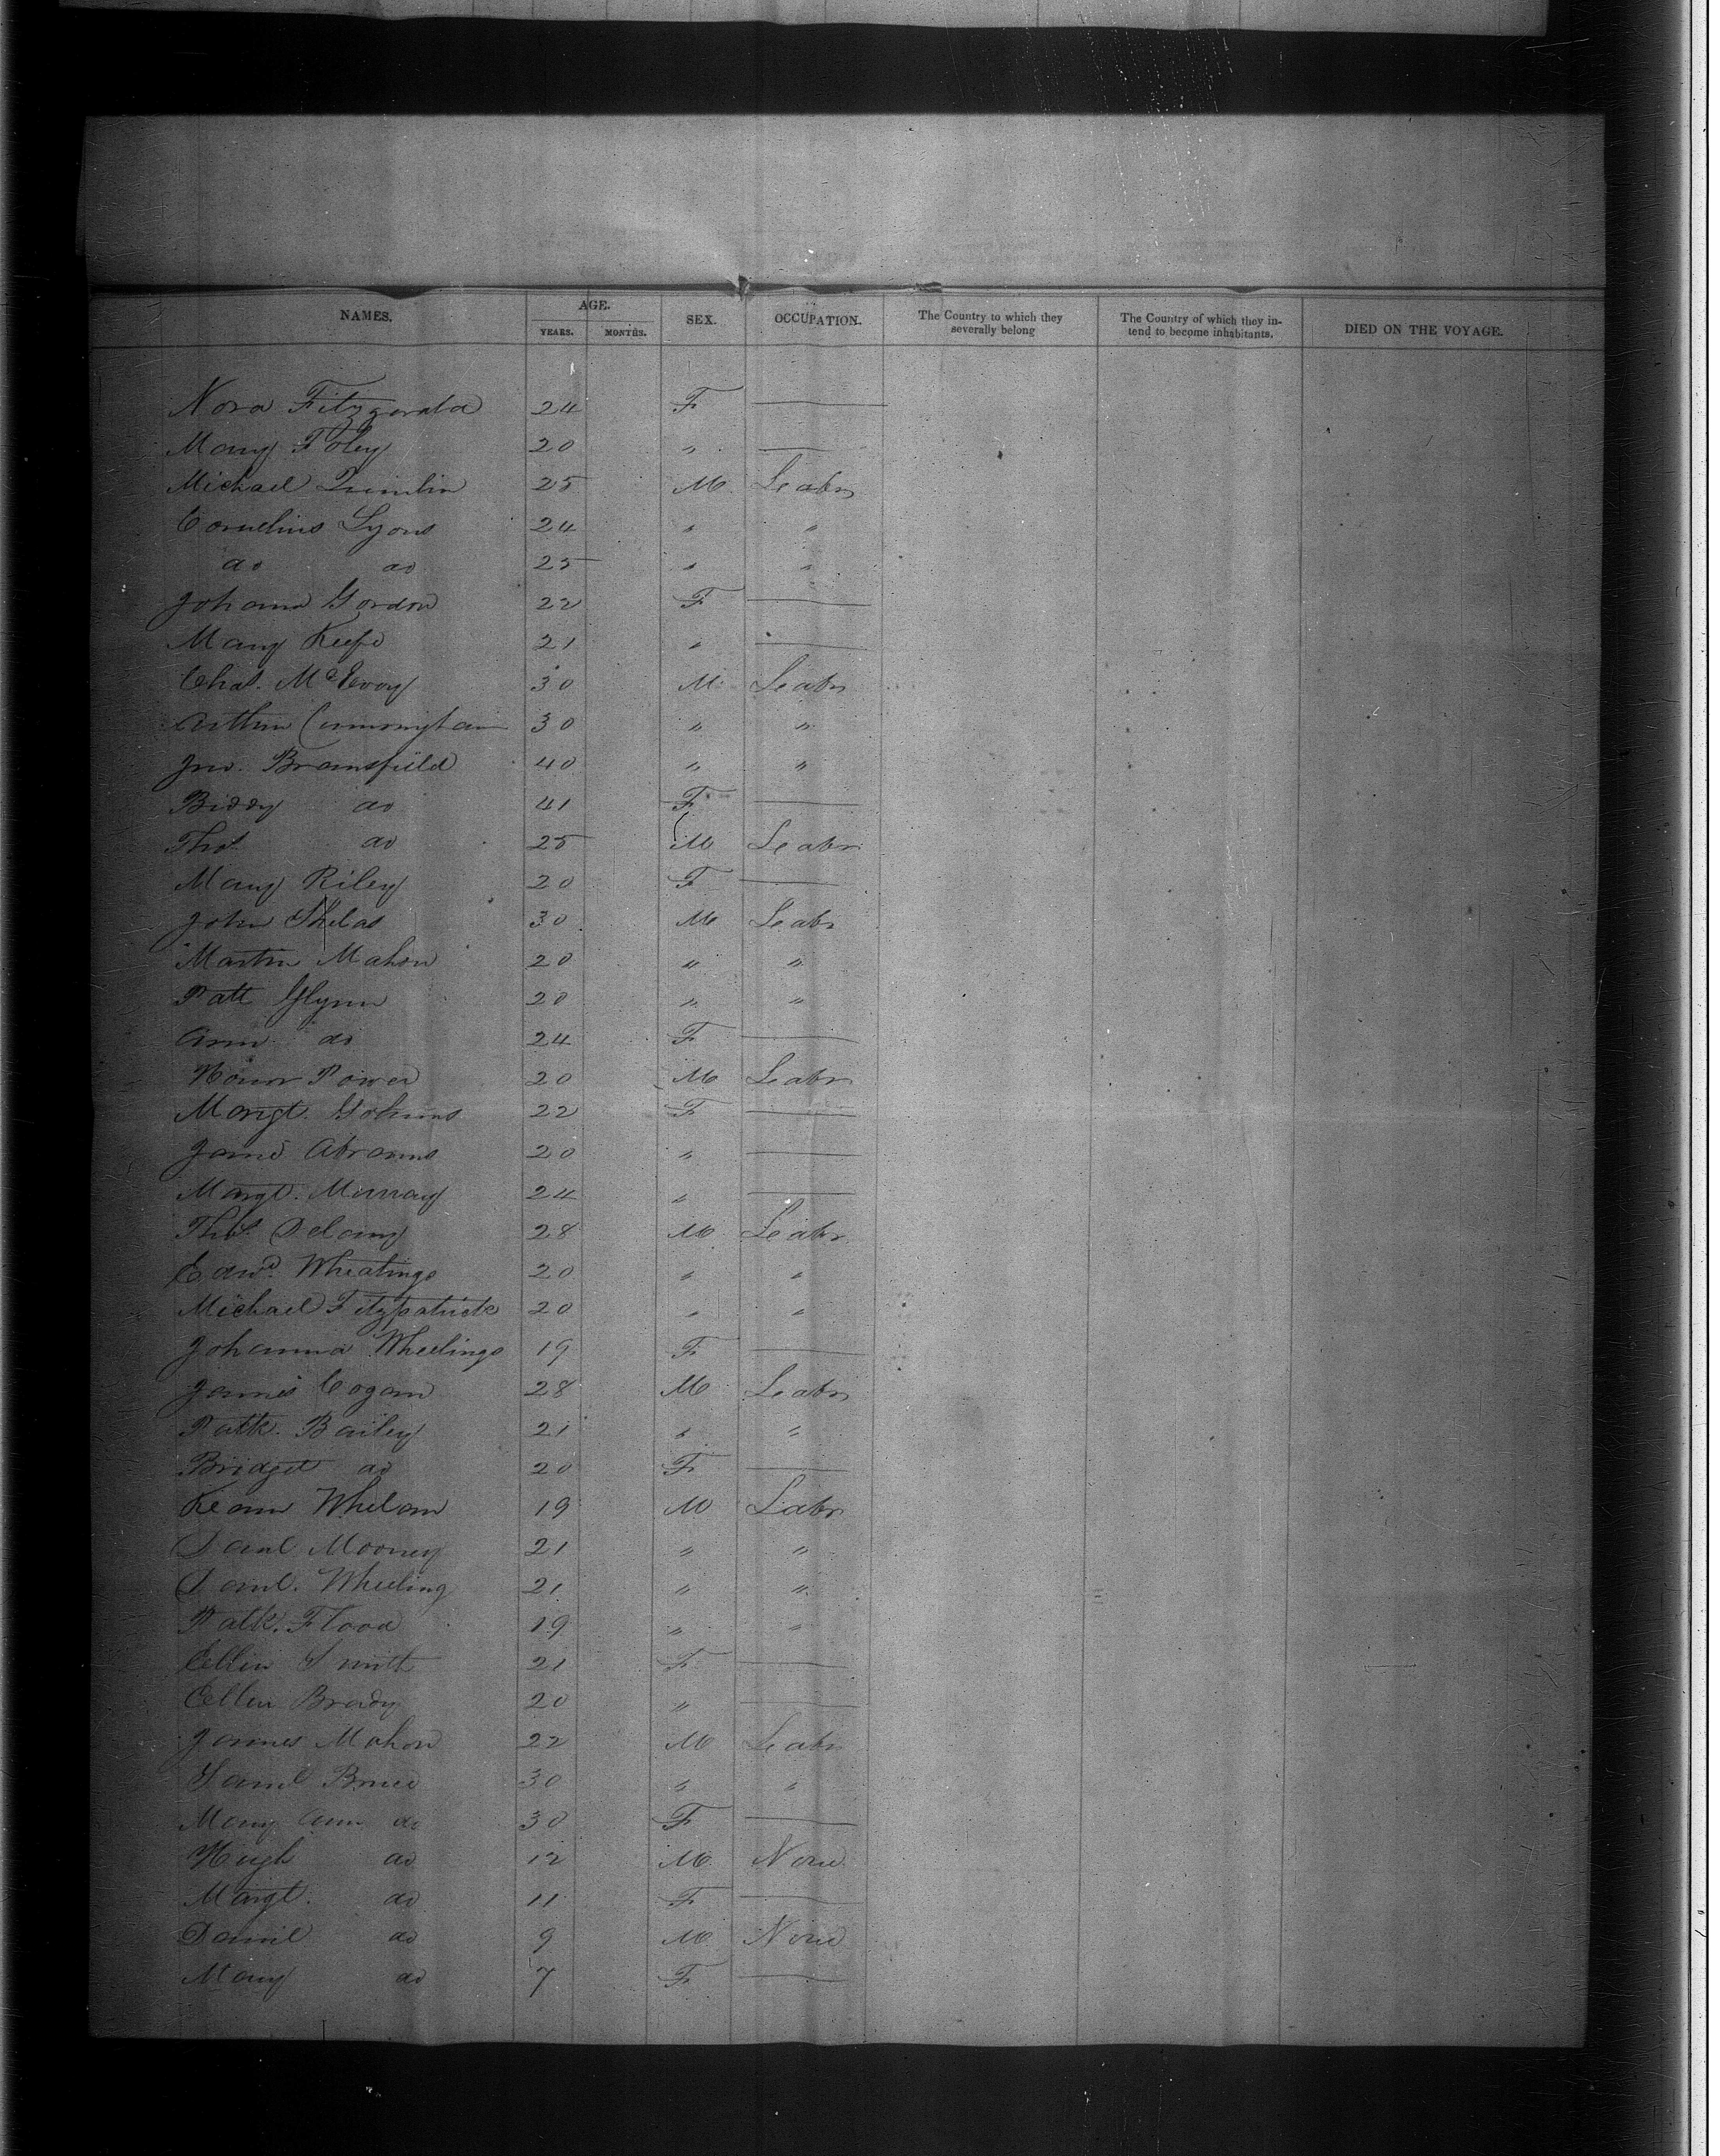 NAMES. AGE. YEARS. MONTHS. SEX. OCCUPATION. The Country to which they severally belong The Country of which they intend to become inhabitants. DIED ON THE VOYAGE.
Nora Fitzgerald 24 F —
Mary Foley 20 " —
Michael 25 M Leabr
Cornelius Lyons 24 " "
do do 25 " "
Johana Gordon 22 F —
Mary Keefe 21 " —
Chas. McEvoy 30 M Leabr
Arthur Cunningham 30 " "
Jno. Bransfield 40 " "
Biddy do 41 F —
Thos. do 25 M Leabr
Mary Riley 20 F —
John 30 M Leabr
Martin Mahon 20 " "
Patt Glynn 20 " "
Ann do 24 F —
Honor Power 20 M Leabr
Margt. 22 F —
Jane Abrams 20 " —
Margt. Murray 24 " —
Thos. Delany 28 M Leabr
Edwd. Wheatings 20 " "
Michael Fitzpatrick 20 " "
Johanna Wheelings 19 F —
James Cogan 28 M Leabr
Patk. Bailey 21 " "
Bridget do 20 F —
Kean Whelan 19 M Labr
Danl Mooney 21 " "
Danl. Wheeling 21 " "
Patk. Flood 19 " "
Ellin Smith 21 F —
Ellen Brady 20 " —
James Mahon 22 M Leabr
Saml Bruce 30 " "
Mary Ann do 30 F —
Hugh do 12 M None
Margt. do 11 F —
Daniel do 9 M None
Mary do 7 F —